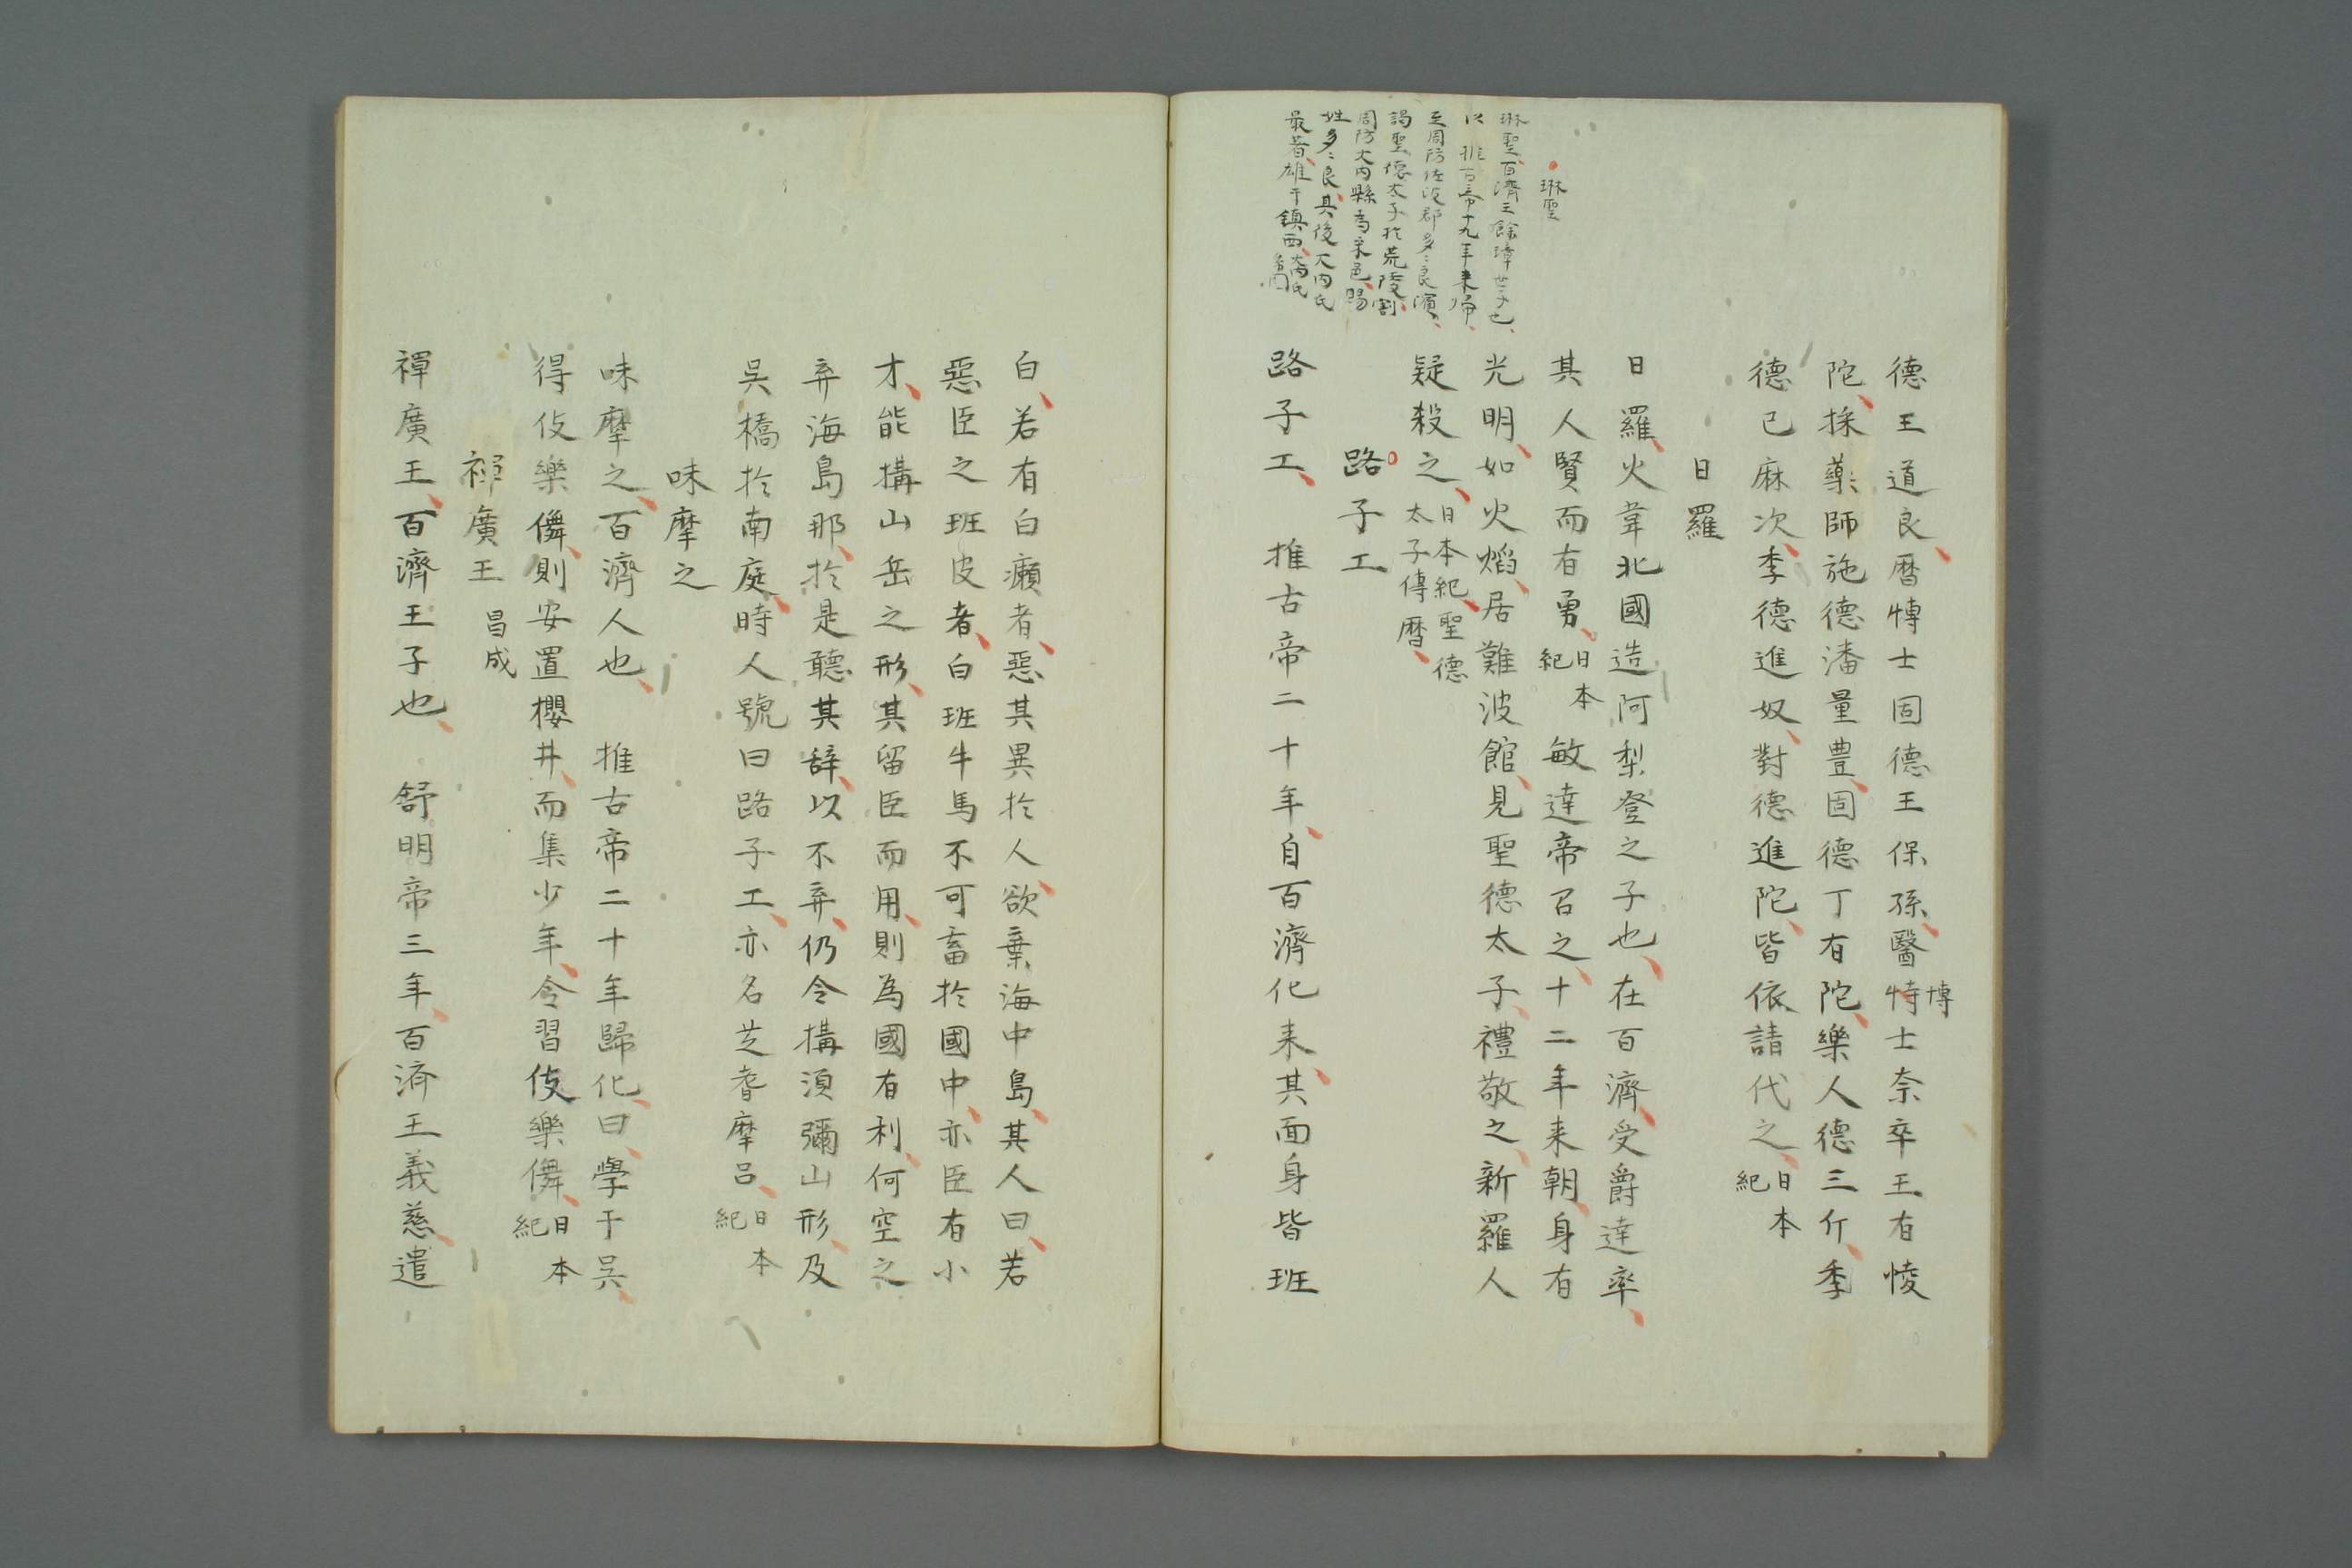 德王道良曆愽士固德王保孫醫愽士奈卒王有㥄
博
陀採藥師施德潘量豊固德丁有陀樂人德三斤季
德已麻次季德進奴對德進陀皆依請代之日本紀
日羅
日羅火葦北國造阿梨登之子也在百濟受爵達率
其人賢而有勇日本紀 敏達帝召之十二年来朝身有
光明如火焰居難波館見聖德太子禮敬之新羅人
疑殺之日本紀聖德太子傳曆
路子工
路子工 推古帝二十年自百濟化来其面身皆班
琳聖
琳聖百濟王餘璋世子也
以推古帝十九年来帰
至周防佐波郡多々良濱
謁聖德太子於荒陵割
周防大内縣為采邑賜
姓多々良其後大内氏
最著雄于鎮西大内氏
白若有白癩者惡其異於人欲棄海中島其人曰若
惡臣之班皮者白班牛馬不可畜於國中亦臣有小
才能搆山岳之形其留臣而用則為國有利何空之
弃海島那於是聽其辞以不弃仍令搆須彌山形及
吳橋於南庭時人號曰路子工亦名芝耆摩呂日本紀
味摩之
味摩之百濟人也 推古帝二十年歸化曰學于吳
得伎樂儛則安置櫻井而集少年令習伎樂儛日本紀
禪廣王 昌成
禪廣王百濟王子也 舒明帝三年百济王義慈遣